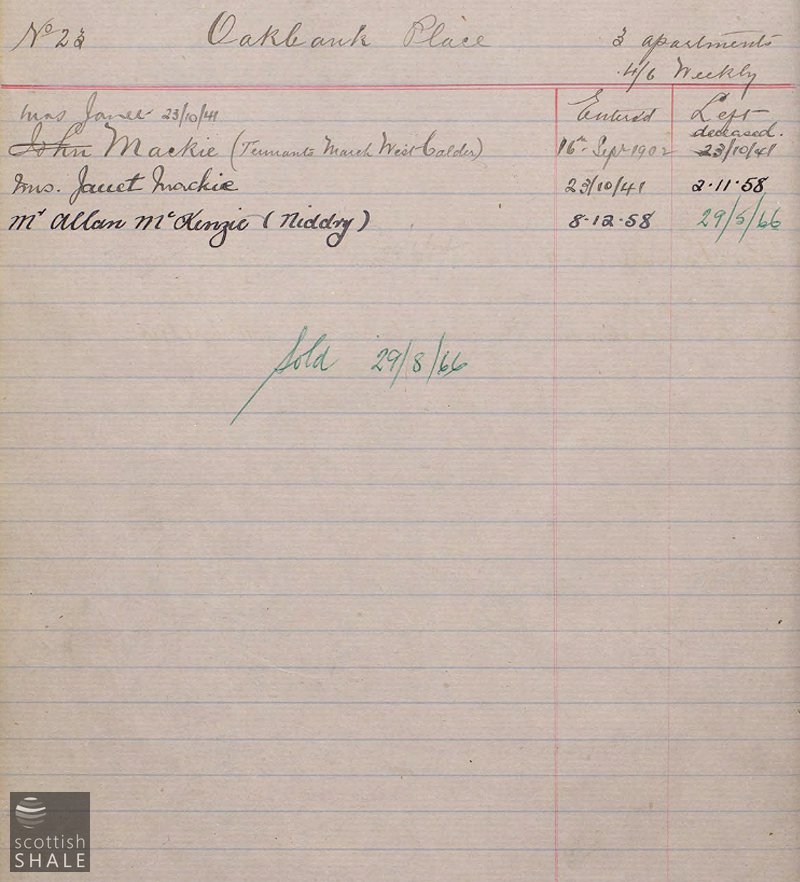 No 23 Oakbank Place 3 apartments
4/6 Weekly
Mrs Janet 23/10/41 Entered Left
deceased.
John Mackie (Tennants March West Calder) 16th Sept 1902 23/10/41
Mrs. Janet Mackie 23/10/41 2.11.58
Mr Allan McKenzie (Niddry) 8.12.58 29/5/66
Sold 29/8/66
scottish
SHALE